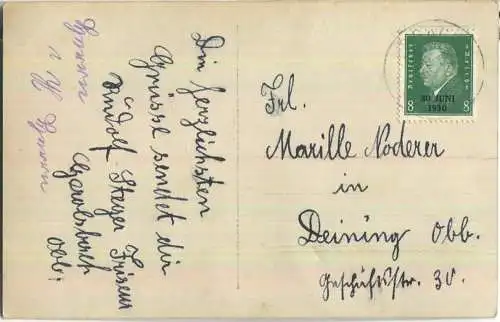 Die herzlichsten
Grüsse sendet dir
Rudolf Steger Friseur
Obb.
Deutsches Reich
30. JUNI
1930
8 8
Frl.
Marille Noderer
in
Deining Obb.
Geschäftsstr. 30.